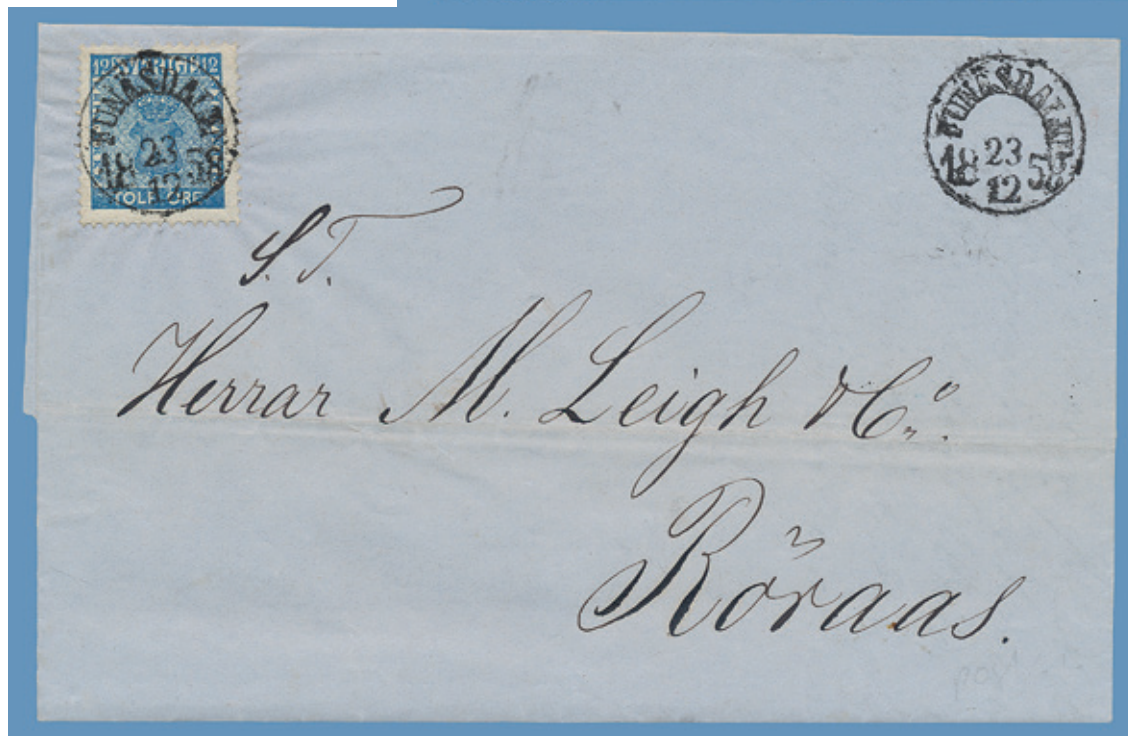 12 SVERIGE 12
FUNÄSDALEN
23
18 58
12
TOLF ÖRE
FUNÄSDALEN
23
18 58
12
S. T.
Herrar M. Leigh & Co.
Röraas.